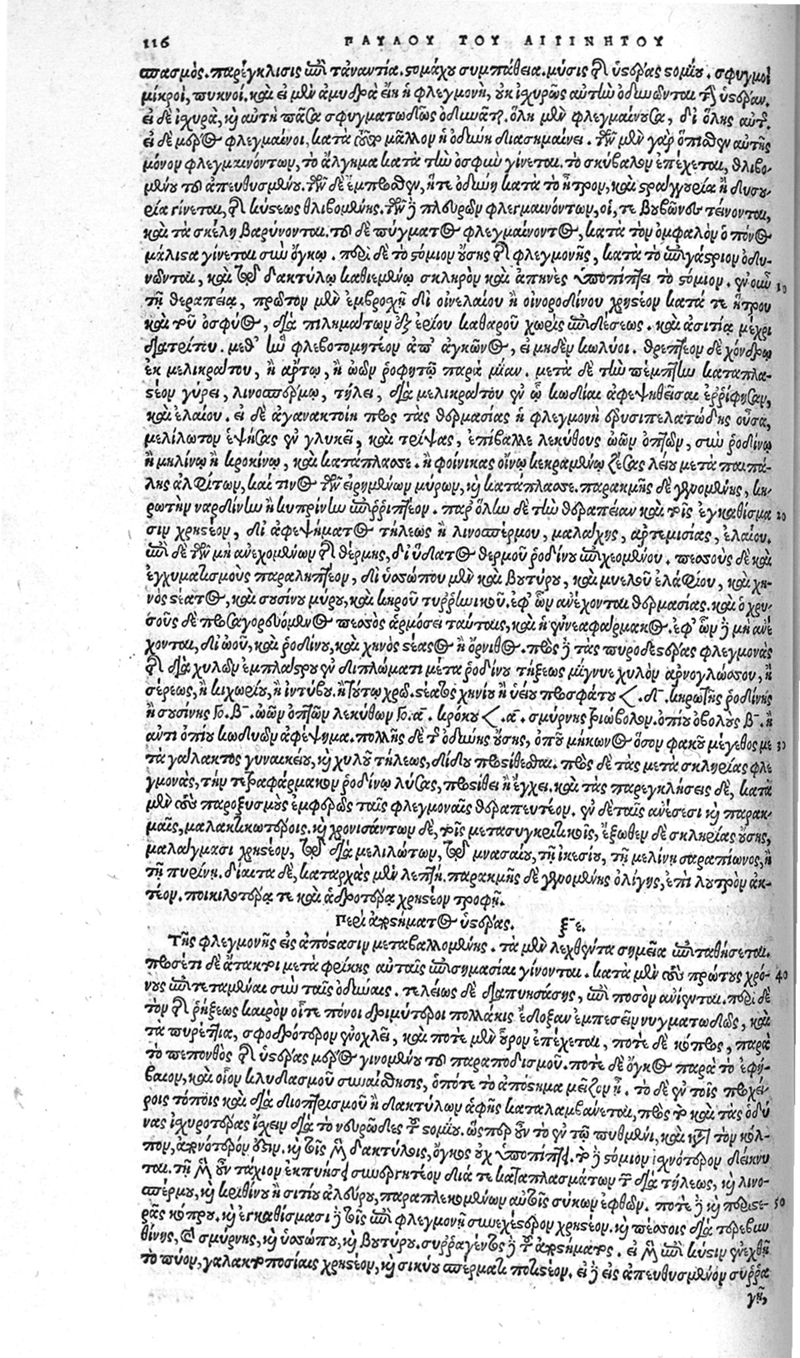 116 ΠΑΥΛΟΥ ΤΟΥ ΑΙΓΙΝΗΤΟΥ
σπασμὸς. παρέγκλισις ἐπὶ τἀναντία. στομάχου συμπάθεια. μύσις τῆς ὑστέρας στομίου. σφυγμοὶ
μίκροὶ, πυκνοί. καὶ εἰ μὲν ἀμυδρὰ εἴη ἡ φλεγμονὴ, οὐκ ἰχυρῶς αὐτίω ὀδυνῶνται τὴν ὑστέραν.
εἰ δὲ ἰχυρὰ, καὶ αὐτὴ πᾶσα σφυγματωδῶς ὀδυνᾶται. ὅλη μὲν φλεγμαίνουσα, δι' ὅλης αὐτῆς.
εἰ δὲ μέρος φλεγμαίνοι, κατὰ τοῦτο μᾶλλον ἡ ὀδύνη διασημαίνει. τῶν μὲν γὰρ ὄπισθεν αὐτῆς
μόνον φλεγμαινόντων, τὸ ἄλγημα κατὰ τὴν ὀσφὺν γίνεται. τὸ σκύβαλον ἐπέχεται, θλιβο-
μένου τοῦ ἀπευθυσμένου. τῶν δὲ ἔμπροσθεν, ἥ τε ὀδύνη κατὰ τὸ ἦτρον, καὶ στραγγουρία ἢ δυσου-
ρία γίνεται, τῆς κύστεως θλιβομένης. τῶν δὲ πλευρῶν φλεγμαινόντων, οἵ, τε βουβῶνες τείνονται,
καὶ τὰ σκέλη βαρύνονται. τοῦ δὲ πυθμένος φλεγμαίνοντος, κατὰ τὸν ὀμφαλὸν ὁ πόνος
μάλιστα γίνεται σὺν ὄγκῳ. περὶ δὲ τὸ στόμιον οὔσης τῆς φλεγμονῆς, κατὰ τὸ ἐπιγάστριον ὀδυ-
νῶνται, καὶ τῷ δακτύλῳ καθιεμένῳ σκληρὸν καὶ ἀπηνὲς ὑποπίπτει τὸ στόμιον. ἐν οὖν 10
τῇ θεραπείᾳ, πρῶτον μὲν ἐμβροχῇ δι' οἰνελαίου ἢ οἰνοροδίνου χρηστέον κατά τε ἤτρου
καὶ τοῦ ὀσφύος, διὰ πιλημάτων ἐξ ἐρίου καθαροῦ χωρὶς ἐπιδέσεως. καὶ ἀσιτίᾳ μέχρι
διατρίτου. μεθ' ἣν φλεβοτομητέον ἀπ' ἀγκῶνος, εἰ μηδὲν κωλύοι. θρεπτέον δὲ χόνδρῳ
ἐκ μελικράτου, ἢ ἄρτῳ, ἢ ὠῶν ῥοφητῷ παρὰ μίαν. μετὰ δὲ τὴν πέμπτην καταπλα-
στέον γύρει, λινοσπέρμῳ, τήλει, διὰ μελικράτου ἐν ᾧ κωδίαι ἀφεψηθεῖσαι ἐρρίφησαν,
καὶ ἐλαίου. εἰ δὲ ἀγανακτοίη πρὸς τὰς θερμασίας ἡ φλεγμονὴ ἐρυσιπελατώδης οὖσα,
μελίλωτον ἑψήσας ἐν γλυκεῖ, καὶ τρίψας, ἐπίβαλλε λεκύθους ὠῶν ὀπτῶν, σὺν ῥοδίνῳ
ἢ μηλίνῳ ἢ κροκίνῳ, καὶ κατάπλασσε. ἢ φοίνικας οἴνῳ κεκραμένῳ ζέσας λεῖε μετὰ παιπά-
λης ἀλφίτων, καί τινος τῶν εἰρημένων μύρων, καὶ κατάπλασσε. παρακμῆς δὲ γενομένης, κη-
ρωτὴν ναρδίνῳ ἢ κυπρίνῳ ἐπιρριπτέον. παρ' ὅλην δὲ τὴν θεραπείαν καὶ τοῖς ἐγκαθίσμα 20
σιν χρηστέον, δι' ἀφεψήματος τήλεως ἢ λινοσπέρμου, μαλάχης, ἀρτεμισίας, ἐλαίου.
ἐπὶ δὲ τῶν μὴ ἀνεχομένων τῆς θέρμης, δι' ὕδατος θερμοῦ ῥοδίνου ἐπιχεομένου. πεσσοὺς δὲ καὶ
ἐγχυματισμοὺς παραληπτέον, δι' ὑσσώπου μὲν καὶ βουτύρου, καὶ μυελοῦ ἐλαφίου, καὶ χη-
νὸς στέατος, καὶ σουσίνου μύρου, καὶ κηροῦ τυρρηνικοῦ. ἐφ' ὧν ἀνέχονται θερμασίας. καὶ ὁ χρυ-
σοῦς δὲ προσαγορευόμενος πεσσὸς ἁρμόσει ταύταις, καὶ ἡ ἐννεαφάρμακος. ἐφ' ὧν δὲ μὴ ἀνέ
χονται, δι' ὠοῦ, καὶ ῥοδίνου, καὶ χηνὸς στέατος ἢ ὄρνιθος. πρὸς δὲ τὰς πυρωδεστέρας φλεγμονὰς
τῆς διὰ χυλῶν ἐμπλάστρου ἐν διπλώματι μετὰ ῥοδίνου τήξεως μίγνυε χυλὸν ἀρνογλώσσου, ἢ
σέρεως, ἢ κιχωρίου, ἢ ἰντύβου. ἢ τούτῳ χρῶ. στέατος χηνίου ἢ ὑείου προσφάτου <. δ. κηρωτῆς ῥοδίνης
ἢ σουσίνης Γο. β. ὠῶν ὀπτῶν λεκύθων Γο. α. κρόκου <. α. σμύρνης τριώβολον. ὀπίου ὀβολοὺς β. ἢ
ἀντὶ ὀπίου κωδυῶν ἀφέψημα. πολλῆς δὲ τῆς ὀδύνης οὔσης, ὀποῦ μήκωνος ὅσον φακοῦ μέγεθος με 30
τὰ γάλακτος γυναικείου, καὶ χυλοῦ τήλεως, δίδου προστίθεσθαι. πρὸς δὲ τὰς μετὰ σκληρίας φλε
γμονὰς, τὴν τετραφάρμακον ῥοδίνῳ λύσας, προστίθει ἢ ἔγχει. καὶ τὰς παρεγκλίσεις δὲ, κατὰ
μὲν τοὺς παροξυσμοὺς ἐμφερῶς ταῖς φλεγμοναῖς θεραπευτέον. ἐν δὲ ταῖς ἀνέσεσι καὶ παρακ-
μαῖς, μαλακτικωτέροις. καὶ χρονισάντων δὲ, τοῖς μετασυγκριτικοῖς, ἔξωθεν δὲ σκληρίας οὔσης,
μαλάγμασι χρηστέον, τῷ διὰ μελιλώτων, τῷ μνασαίου, τῇ ἰκεσίου, τῇ μηλίνῃ σαραπίωνος, ἢ
τῇ πυρίνῃ. δίαιτα δὲ, καταρχὰς μὲν λεπτή. παρακμῆς δὲ γενομένης ὀλίγης, ἐπὶ λουτρὸν ἀκ-
τέον. ποικιλοτέρᾳ τε καὶ ἁδροτέρᾳ χρηστέον τροφῇ.
Περὶ ἀποστήματος ὑστέρας. ξε.
Τῆς φλεγμονῆς εἰς ἀπόστασιν μεταβαλλομένης. τὰ μὲν λεχθέντα σημεῖα ἐπιταθήσεται.
προσέτι δὲ ἄτακτοι μετὰ φρίκης αὐταῖς ἐπισημασίαι γίνονται. κατὰ μὲν τοὺς πρώτους χρό- 40
νους ἐπιτεταμέναι σὺν ταῖς ὀδύναις. τελέως δὲ διαπυησάσης, ἐπὶ ποσὸν ἀνίενται. περὶ δὲ
τὸν τῆς ῥήξεως καιρὸν οἵτε πόνοι δριμύτεροι πολλάκις ἔδοξαν ἐμπεσεῖν νυγματωδῶς, καὶ
τὰ πυρέτια, σφοδρότερον ἐνοχλεῖ, καὶ ποτὲ μὲν οὖρον ἐπέχεται, ποτὲ δὲ κόπρος, παρὰ
τὸ πεπονθὸς τῆς ὑστέρας μέρος γινομένου τοῦ παραποδισμοῦ. ποτὲ δὲ ὄγκος παρὰ τὸ ἐφή-
βαιον, καὶ οἷον κλυδασμοῦ συναίσθησις, ὁπότε τὸ ἀπόστημα μεῖζον ᾖ. τὸ δὲ ἐν τοῖς προχεί-
ροις τόποις καὶ διὰ διοπτρισμοῦ ἢ δακτύλων ἁφῆς καταλαμβάνεται, πρὸς τῷ καὶ τὰς ὀδύ
νας ἰχυροτέρας ἴχειν διὰ τὸ νευρῶδες τοῦ στομίου. ὥσπερ οὖν τὸ ἐν τῷ πυθμένι, καὶ κατὰ τὸν κόλ-
πον, ἀπονότερόν ἐστιν. καὶ τοῖς μὲν δακτύλοις, ὄγκος οὐχ ὑποπίπτει. τὸ δὲ στόμιον ἰχνότερον δείκνυ
ται. τῇ μὲν οὖν τάχιον ἐκπυήσει συνεργητέον διά τε καταπλασμάτων τοῦ διὰ τήλεως, καὶ λινο-
σπέρμου, καὶ κριθίνου ἢ σιτίνου ἀλεύρου, παραπλεκομένων αὐτοῖς σύκων ἑφθῶν. ποτὲ δὲ καὶ περιστε- 50
ρᾶς κόπρου. καὶ ἐγκαθίσμασι δὲ τοῖς ἐπὶ φλεγμονῇ συνεχέστερον χρηστέον. καὶ πεσσοῖς διὰ τερεβιν
θίνης, καὶ σμύρνης, καὶ ὑσσώπου, καὶ βουτύρου. συρραγέντος δὲ τοῦ ἀποστήματος. εἰ μὲν ἐπὶ κύστιν ἐνεχθῇ
τὸ πῦον, γαλακτοποσίαις χρηστέον, καὶ σικύου σπέρματι ποτιστέον. εἰ δὲ εἰς ἀπευθυσμένον συρρα
γῇ,